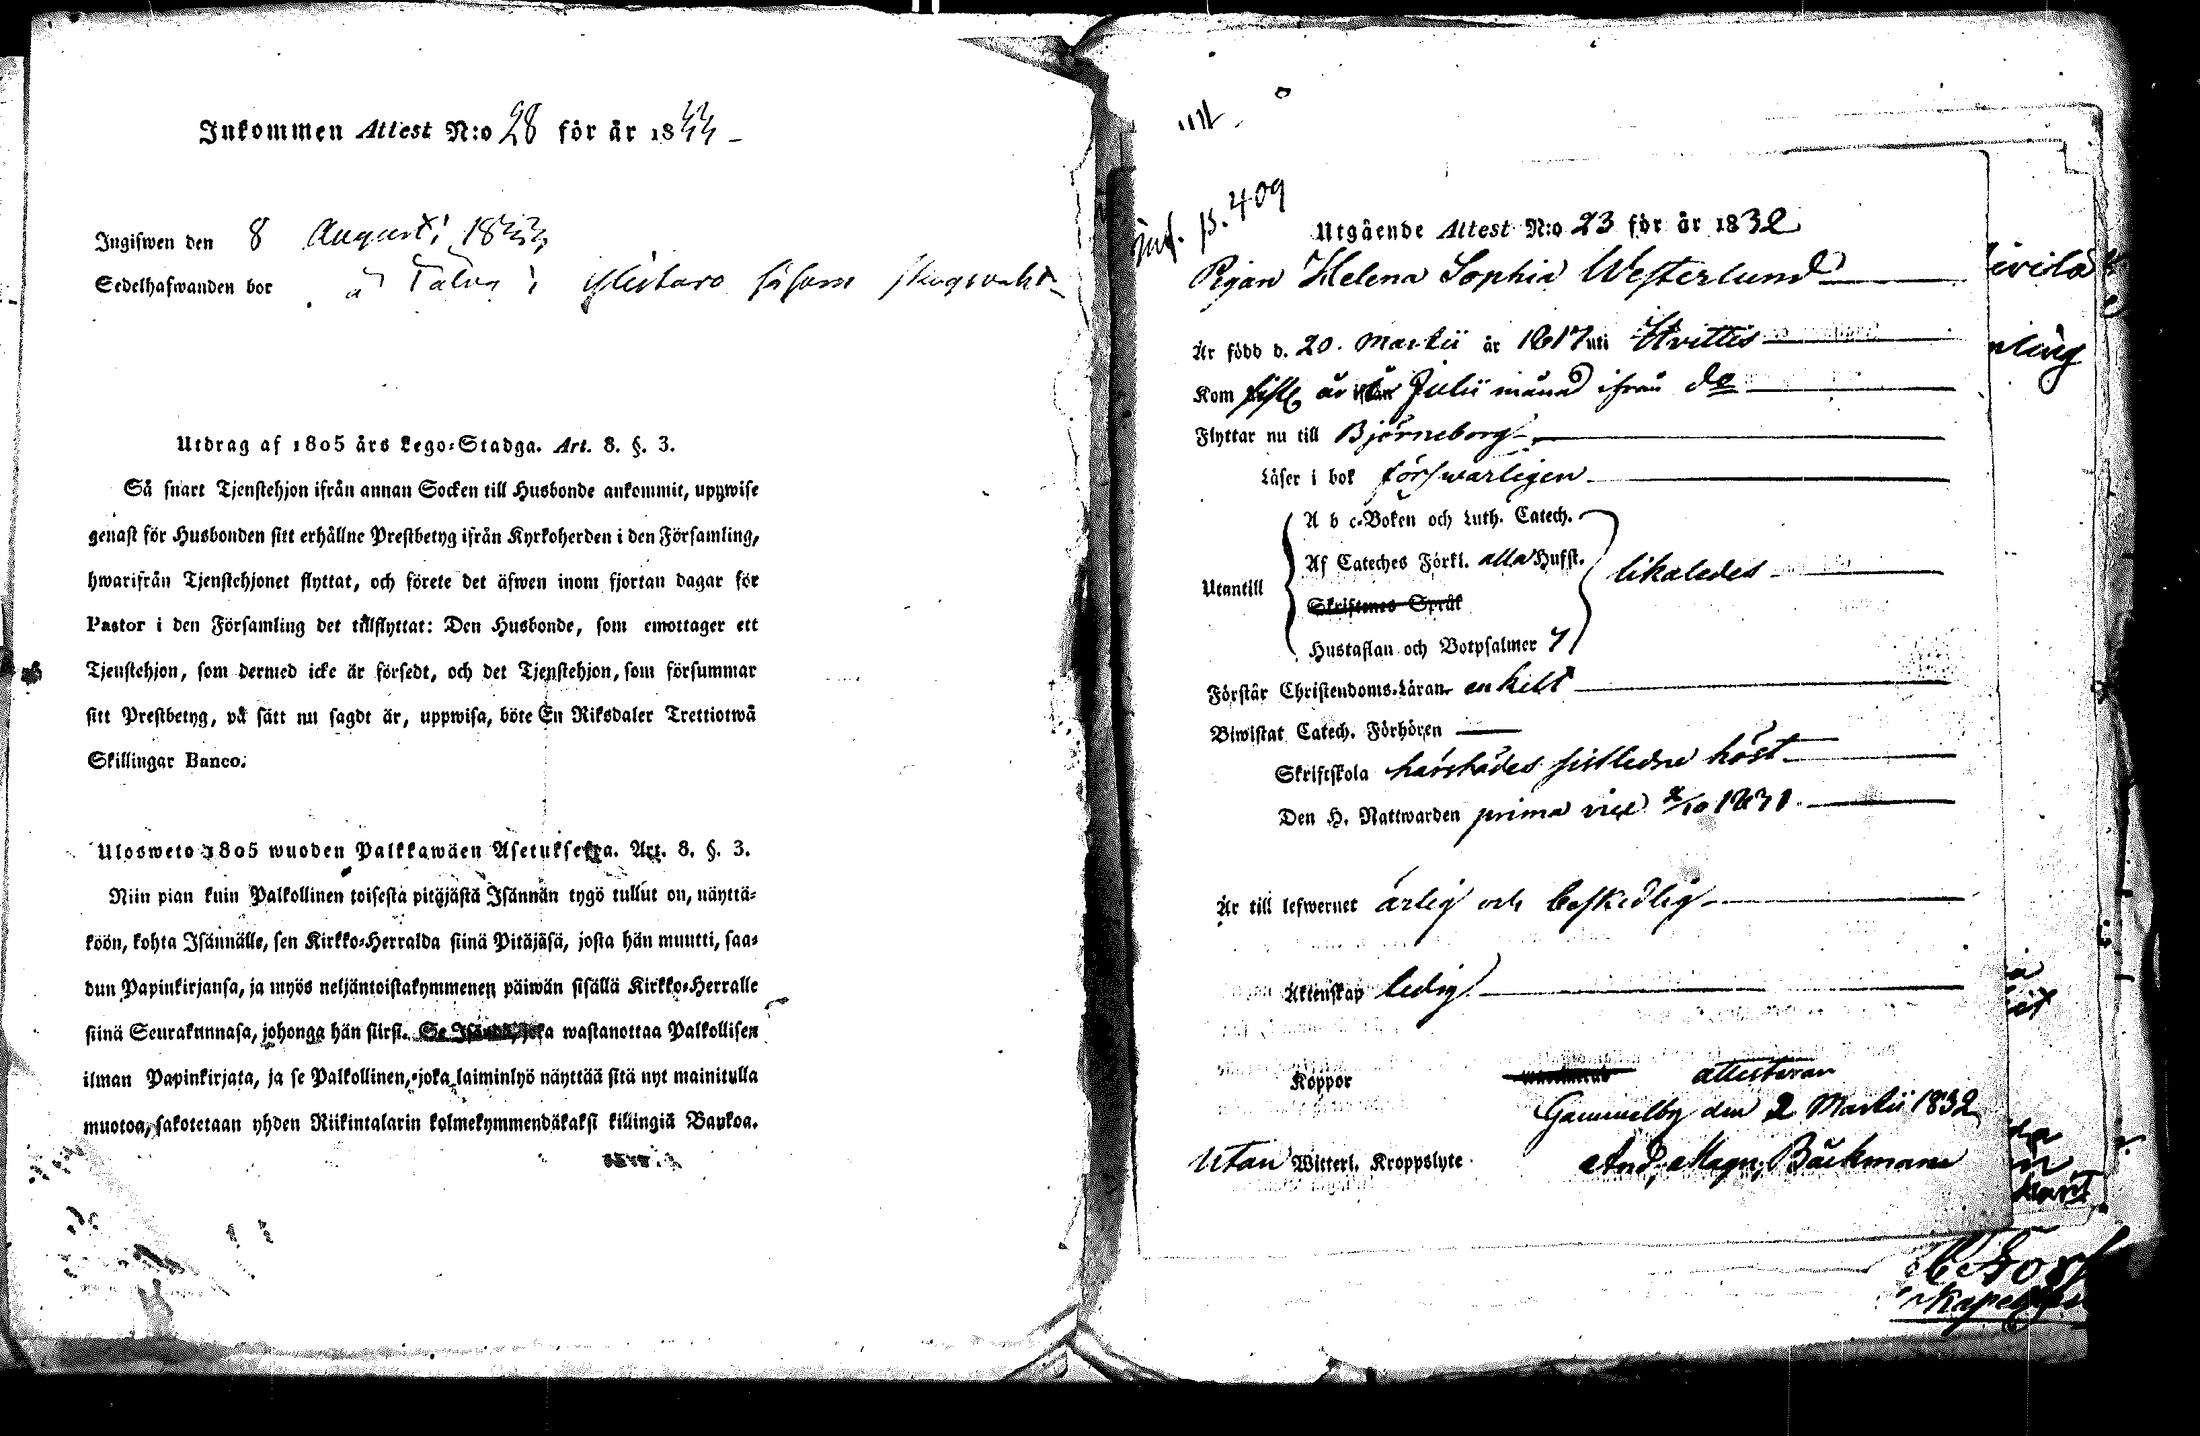 Inkommen Attest N:o 28 för år 1844
Ingifwen den 8 Augusti 1844
Sedelhafwanden bor å i såsom skogvakt
Utdrag af 1805 års Lego-Stadga. Art. 8. §. 3.
Så snart Tjenstehjon ifrån annan Socken till Husbonde ankommit, uppwise
genast för Husbonden sitt erhållne Prestbetyg ifrån Kyrkoherden i den Församling,
hwarifrån Tjenstehjonet flyttat, och förete det äfwen inom fjortan dagar för
Pastor i den Församling det tillflyttat: Den Husbonde, som emottager ett
Tjenstehjon, som dermed icke är försedt, och det Tjenstehjon, som försummar
sitt Prestbetyg, på sätt nu sagdt är, uppwisa, böte En Riksdaler Trettiotwå
Skillingar Banco.
Ulosweto 1805 wuoden Palkkawäen Asetuksesta. Art. 8. §. 3.
Niin pian kuin Palkollinen toisesta pitäjästä Isännän tygö tullut on, näyttä-
köön, kohta Isännälle, sen Kirkko-Herralda siinä Pitäjäsä, josta hän muutti, saa-
dun Papinkirjansa, ja myös neljäntoistakymmenen päiwän sisällä Kirkko-Herralle
siinä Seurakunnasa, johonga hän siirsi. Se Isändä, joka wastanottaa Palkollisen
ilman Papinkirjata, ja se Palkollinen, joka laiminlyö näyttää sitä nyt mainitulla
muotoa, sakotetaan yhden Riikintalarin kolmekymmendäkaksi killingiä Bankoa.
inf. p. 409
Utgående Attest N:o 23 för år 1832
Pigan Helena Sophia Westerlund
Är född d. 20. Martii år 1817 uti Hvittis
Kom sistl. år i Julii månad ifrån do
Flyttar nu till Björneborg
Läser i bok försvarligen
Utantill
A b c-Boken och Luth. Catech.
Af Cateches Förkl. alla Hufst.
Skriftenes Språk
Hustaflan och Botpsalmer 7
likaledes
Förstår Christendoms-Läran enkelt
Biwistat Catech. Förhören —
Skriftskola härstädes sistledne höst
Den H. Nattwarden prima vice 2/10 1831.
Är till lefwernet ärlig och beskedlig
Äktenskap ledig
Koppor
attesteras
Gammelby den 2 Martii 1832
Utan Witterl. Kroppslyte
And. Magn. Bäckman